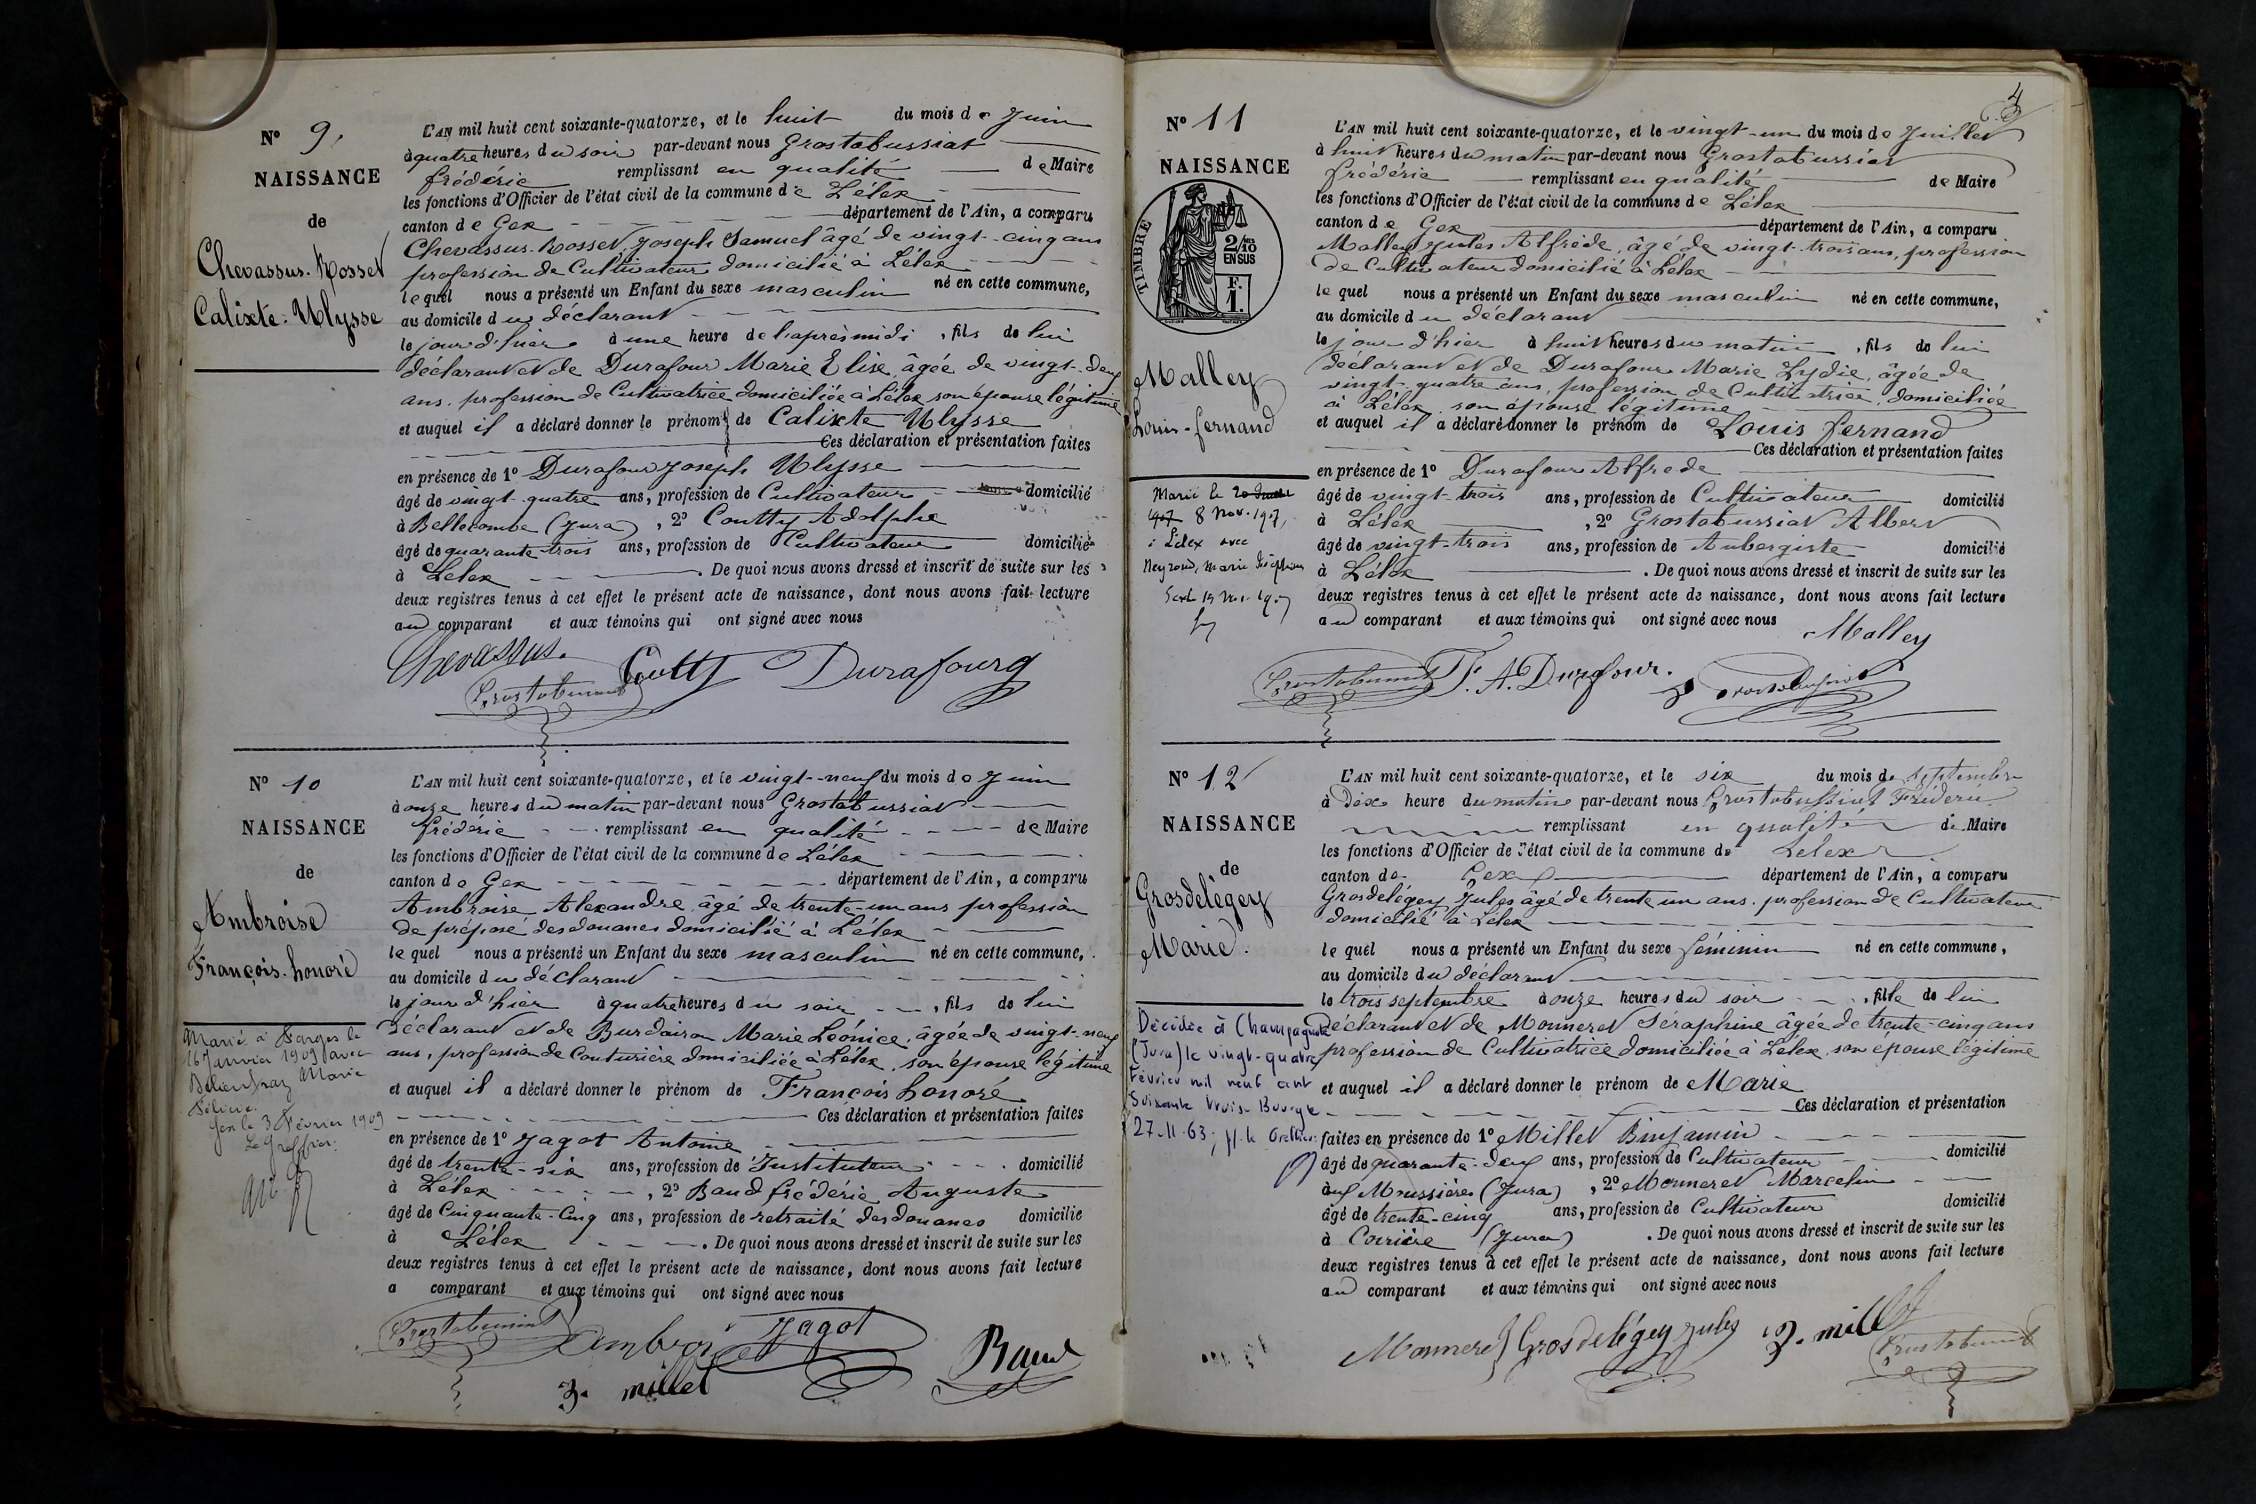 N° 9.
NAISSANCE
de
Chevassus-Rosset
Calixte-Ulysse
L'AN mil huit cent soixante-quatorze, et le huit du mois de Juin
à quatre heures du soir par-devant nous Grostabussiat
frédéric remplissant en qualité de Maire
les fonctions d'Officier de l'état civil de la commune de Lélex
canton de Gex département de l'Ain, a comparu
Chevassus-Rosset, Joseph Samuel âgé de vingt-cinq ans
profession de Cultivateur domicilié à Lélex
lequel nous a présenté un Enfant du sexe masculin né en cette commune,
au domicile du déclarant
le jour d'hier à une heure de l'après midi, fils de lui
déclarant et de Durafour Marie Elise, âgée de vingt-deux
ans, profession de Cultivatrice domiciliée à Lélex son épouse légitime
et auquel il a déclaré donner le prénom de Calixte Ulysse
Ces déclaration et présentation faites
en présence de 1° Durafour Joseph Ulysse
âgé de vingt-quatre ans, profession de Cultivateur domicilié
à Bellecombe (Jura), 2° Coutty Adolphe
âgé de quarante-trois ans, profession de Cultivateur domicilié
à Lélex. De quoi nous avons dressé et inscrit de suite sur les
deux registres tenus à cet effet le présent acte de naissance, dont nous avons fait lecture
au comparant et aux témoins qui ont signé avec nous
Chevassus.
Grostabussiat Coutty Durafourg
N° 10
NAISSANCE
de
Ambroise
François-honoré
Marié à Farges le
16 Janvier 1909 avec
Marie
Gex le 3 Février 1909
Le Greffier:
L'AN mil huit cent soixante-quatorze, et le vingt-neuf du mois de Juin
à onze heures du matin par-devant nous Grostabussiat
frédéric remplissant en qualité de Maire
les fonctions d'Officier de l'état civil de la commune de Lélex
canton de Gex département de l'Ain, a comparu
Ambroise Alexandre âgé de trente-un ans profession
de préposé des douanes domicilié à Lélex
lequel nous a présenté un Enfant du sexe masculin né en cette commune,
au domicile du déclarant
le jour d'hier à quatre heures du soir, fils de lui
déclarant et de Burdairon Marie Léonice, âgée de vingt-neuf
ans, profession de Couturière domiciliée à Lélex, son épouse légitime
et auquel il a déclaré donner le prénom de François honoré
Ces déclaration et présentation faites
en présence de 1° Jagot Antoine
âgé de trente-six ans, profession de Instituteur domicilié
à Lélex, 2° Baud frédéric Auguste
âgé de Cinquante-Cinq ans, profession de retraité des douanes domicilié
à Lélex. De quoi nous avons dressé et inscrit de suite sur les
deux registres tenus à cet effet le présent acte de naissance, dont nous avons fait lecture
a comparant et aux témoins qui ont signé avec nous
Grostabussiat Ambroise Jagot
Baud
J. millet
4
N° 11
NAISSANCE
TIMBRE
2/10 EN SUS
F. 1.
Malley
Louis-fernand
Marié le 20 Juillet
1907 8 Nov. 1907,
à Lélex avec
Neyroud, Marie Joséphine
L'AN mil huit cent soixante-quatorze, et le vingt-un du mois de Juillet
à huit heures du matin par-devant nous Grostabussiat
frédéric remplissant en qualité de Maire
les fonctions d'Officier de l'état civil de la commune de Lélex
canton de Gex département de l'Ain, a comparu
Malley Jules Alfrède, âgé de vingt-trois ans, profession
de Cultivateur domicilié à Lélex
le quel nous a présenté un Enfant du sexe masculin né en cette commune,
au domicile du déclarant
le jour d'hier à huit heures du matin, fils de lui
déclarant et de Durafour Marie Lydie, âgée de
vingt-quatre ans, profession de Cultivatrice, domiciliée
à Lélex, son épouse légitime
et auquel il a déclaré donner le prénom de Louis fernand
Ces déclaration et présentation faites
en présence de 1° Durafour Alfrede
âgé de vingt-trois ans, profession de Cultivateur domicilié
à Lélex, 2° Grostabussiat Albert
âgé de vingt-trois ans, profession de Aubergiste domicilié
à Lélex. De quoi nous avons dressé et inscrit de suite sur les
deux registres tenus à cet effet le présent acte de naissance, dont nous avons fait lecture
au comparant et aux témoins qui ont signé avec nous
Malley
Grostabussiat F. A. Durafour. Grostabussiat
N° 12
NAISSANCE
de
Grosdelégey
Marie.
Décédée à Champagnole
(Jura) le vingt-quatre
Février mil neuf cent
Soixante trois.
27-11-63;
L'AN mil huit cent soixante-quatorze, et le six du mois de Septembre
à Dix heure du matin par-devant nous Grostabussiat Fréderic
remplissant en qualité de Maire
les fonctions d'Officier de l'état civil de la commune de Lelex
canton de Gex département de l'Ain, a comparu
Grosdelégey Jules âgé de trente un ans, profession de Cultivateur
domicilié à Lélex
le quel nous a présenté un Enfant du sexe féminin né en cette commune,
au domicile du déclarant
le trois septembre à onze heures du soir, fille de lui
déclarant et de Monneret Séraphine âgée de trente-cinq ans
profession de Cultivatrice domiciliée à Lélex, son épouse légitime
et auquel il a déclaré donner le prénom de Marie
Ces déclaration et présentation
faites en présence de 1° Millet Binjamin
âgé de quarante-deux ans, profession de Cultivateur domicilié
aux Moussières (Jura), 2° Monneret Marcelin
âgé de trente-cinq ans, profession de Cultivateur domicilié
à Coirière (Jura). De quoi nous avons dressé et inscrit de suite sur les
deux registres tenus à cet effet le présent acte de naissance, dont nous avons fait lecture
au comparant et aux témoins qui ont signé avec nous
Monneret Grosdelégey jules J. millet
Grostabussiat